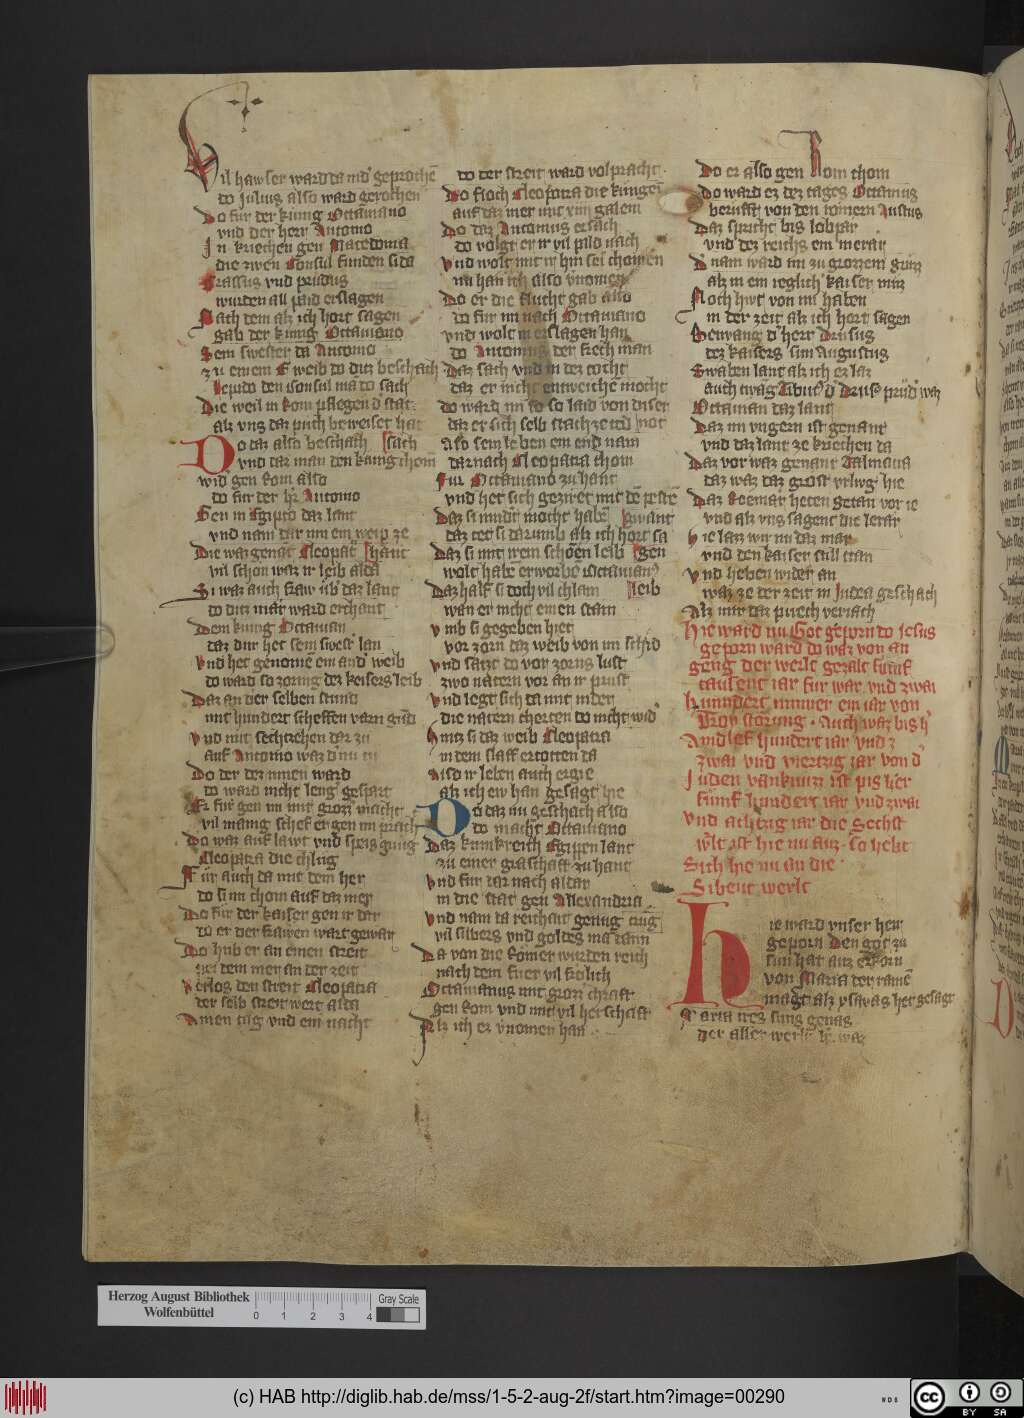 Vil hawser ward da mid geprochē
do Julius also ward gerochen
Do fur der kunig Octaviano
vnd der herr Antonio
In kriechen gen Macedonia
die zwen Consul funden si da
Crassus vnd prudus
wurden all paid erslagen
Nach dem alz ich hort sagen
gab der kunig Octaviano
Sein swester da Antonio
zu einem E weib do ditz beschach
lepido den consul ma do sach
Die weil in Rom pflegen d stat
alz vns daz puch beweiset hat
Do daz also beschach
vnd daz man den kunig chom
wid gen Rom also
do fur der hr Antonio
Gen in Egipto daz lant
vnd nam dar inn ein weip ze hant
Die waz genāt Cleopat
vil schon waz ir leib alda
Si waz auch fraw vb daz lant
do ditz mär ward erchant
Dem kunig Octavian
daz dirr het sein swest lan
Vnd het genomē ein and weib
do ward so zornig dez keisers leib
Daz an der selben stund
mit hundert scheffen varn gūd
Vnd mit sechtzehen dar zu
auf Antonio waz d nu
Do der dez innen ward
do ward nicht leng gespart
Er fur gen im mit grozz macht
vil manig schef er gen im pracht
Do waz auf lawt vnd speis gnug
Cleopatra die chlug
Für auch da mit dem her
do si im chom auf daz mer
Do fur der kaiser gen ir dar
do er der frawen wart gewar
Do hub er an einen streit
pei dem mer an der zeit
Verlos den streit Cleopatra
der selb streit wert alda
Ainen tag vnd ein nacht
do der streit ward volpracht
Do floch Cleopatra die kungeī
auf daz mer mit viii galein
Do daz Antonius ersach
do volgt er ir vil pald nach
Vnd wolt mit ir hin sei chomen
nu han ich also vnomen
Do er die flucht gab also
do fur im nach Octaviano
vnd wolt in erslagen han
do Antonius der kech man
Daz sach vnd in dez docht
daz er nicht entweichē mocht
do ward im so so laid von diser not
daz er sich selb stach ze tod
Also sein leben ein end nam
darnach Cleopatra chom
Fur Octaviano zu hant
vnd het sich geziret mit dē pestē gwant
Daz si mindt mocht habē
daz tet si darumb alz ich hort sagen
Daz si mit irem schōen leib
wolt habē erworbē Octavian leib
Daz half si doch vil chlain
wan er nicht einen stain
vmb si gegeben hiet
vor zorn daz weib von im schid
vnd satzt do vor zorns lust
zwo natern vor an ir prust
vnd legt sich da mit nider
die natern cherten do nicht wid
Hintz si daz weib Cleopatra
in dem slaff ertotten da
Also ir leben auch ergie
alz ich ew han gesagt hie
Do daz nu geschach also
do macht Octaviano
Daz kunikreich Egipten lant
zu einer grafschaft zu hant
vnd fur dar nach aldar
in die stat gen Allexandria
vnd nam da reichait genug
vil silbers vnd goldes ma dann
Da von die Romer wurden reich
nach dem fuer vil frolich
Octavianus mit grozz chraft
gen Rom vnd mit vil herschaft
Alz ich ez vnomen han
Do er also gen Rom chom
do ward ez dez tages Octavius
berufft von den romern Austus
Daz spricht bis lobpar
vnd dez reichs ein merar
D nam ward im zu grozzem gunz
alz in ein ieglich kaiser muz
Noch hivt von im haben
in der zeit alz ich hort sagen
Betwang d herr Drusus
dez kaisers sun Augustus
Swaben lant alz ich ez laz
auch twāg Tibut d Drus prūd waz
Octavian daz lant
Daz nu vngern ist genant
vnd daz lant ze kriechen da
Daz vor waz genant Dalmatia
daz waz daz grost vrlwg hie
Daz Roemar heten getan vor ie
vnd alz vns sagent die lerar
hie lazz wir nu daz mär
vnd den kaiser still stan
vnd heben wider an
waz ze der zeit in Judea geschach
Alz mir daz puech veriach
Hie ward nu Got geporn do iesus
geporn ward do waz von an
geng der werlt gezalt funf
tausent iar fur war vnd zwai
hundert minner ein iar von
Troy störung. Auch waz bis h
Aindlef hundert iar vnd z
zwai vnd viertzig iar von d
Juden vanknizz ist pis her
funf hundert iar vnd zwai
vnd achtzig iar die sechst
wlt ist hie nu auz. So hebt
Sich hie nu an die
Sibent werlt
Hie ward vnser herr
geporn Den got zu
sun hat auz erkorn
von Maria der rainē
magt alz ysaias het gesagt
Maria ires suns genas
der aller werlt h waz
Herzog August Bibliothek
Wolfenbüttel
0 1 2 3 4
Gray Scale
(c) HAB http://diglib.hab.de/mss/1-5-2-aug-2f/start.htm?image=00290
cc BY SA